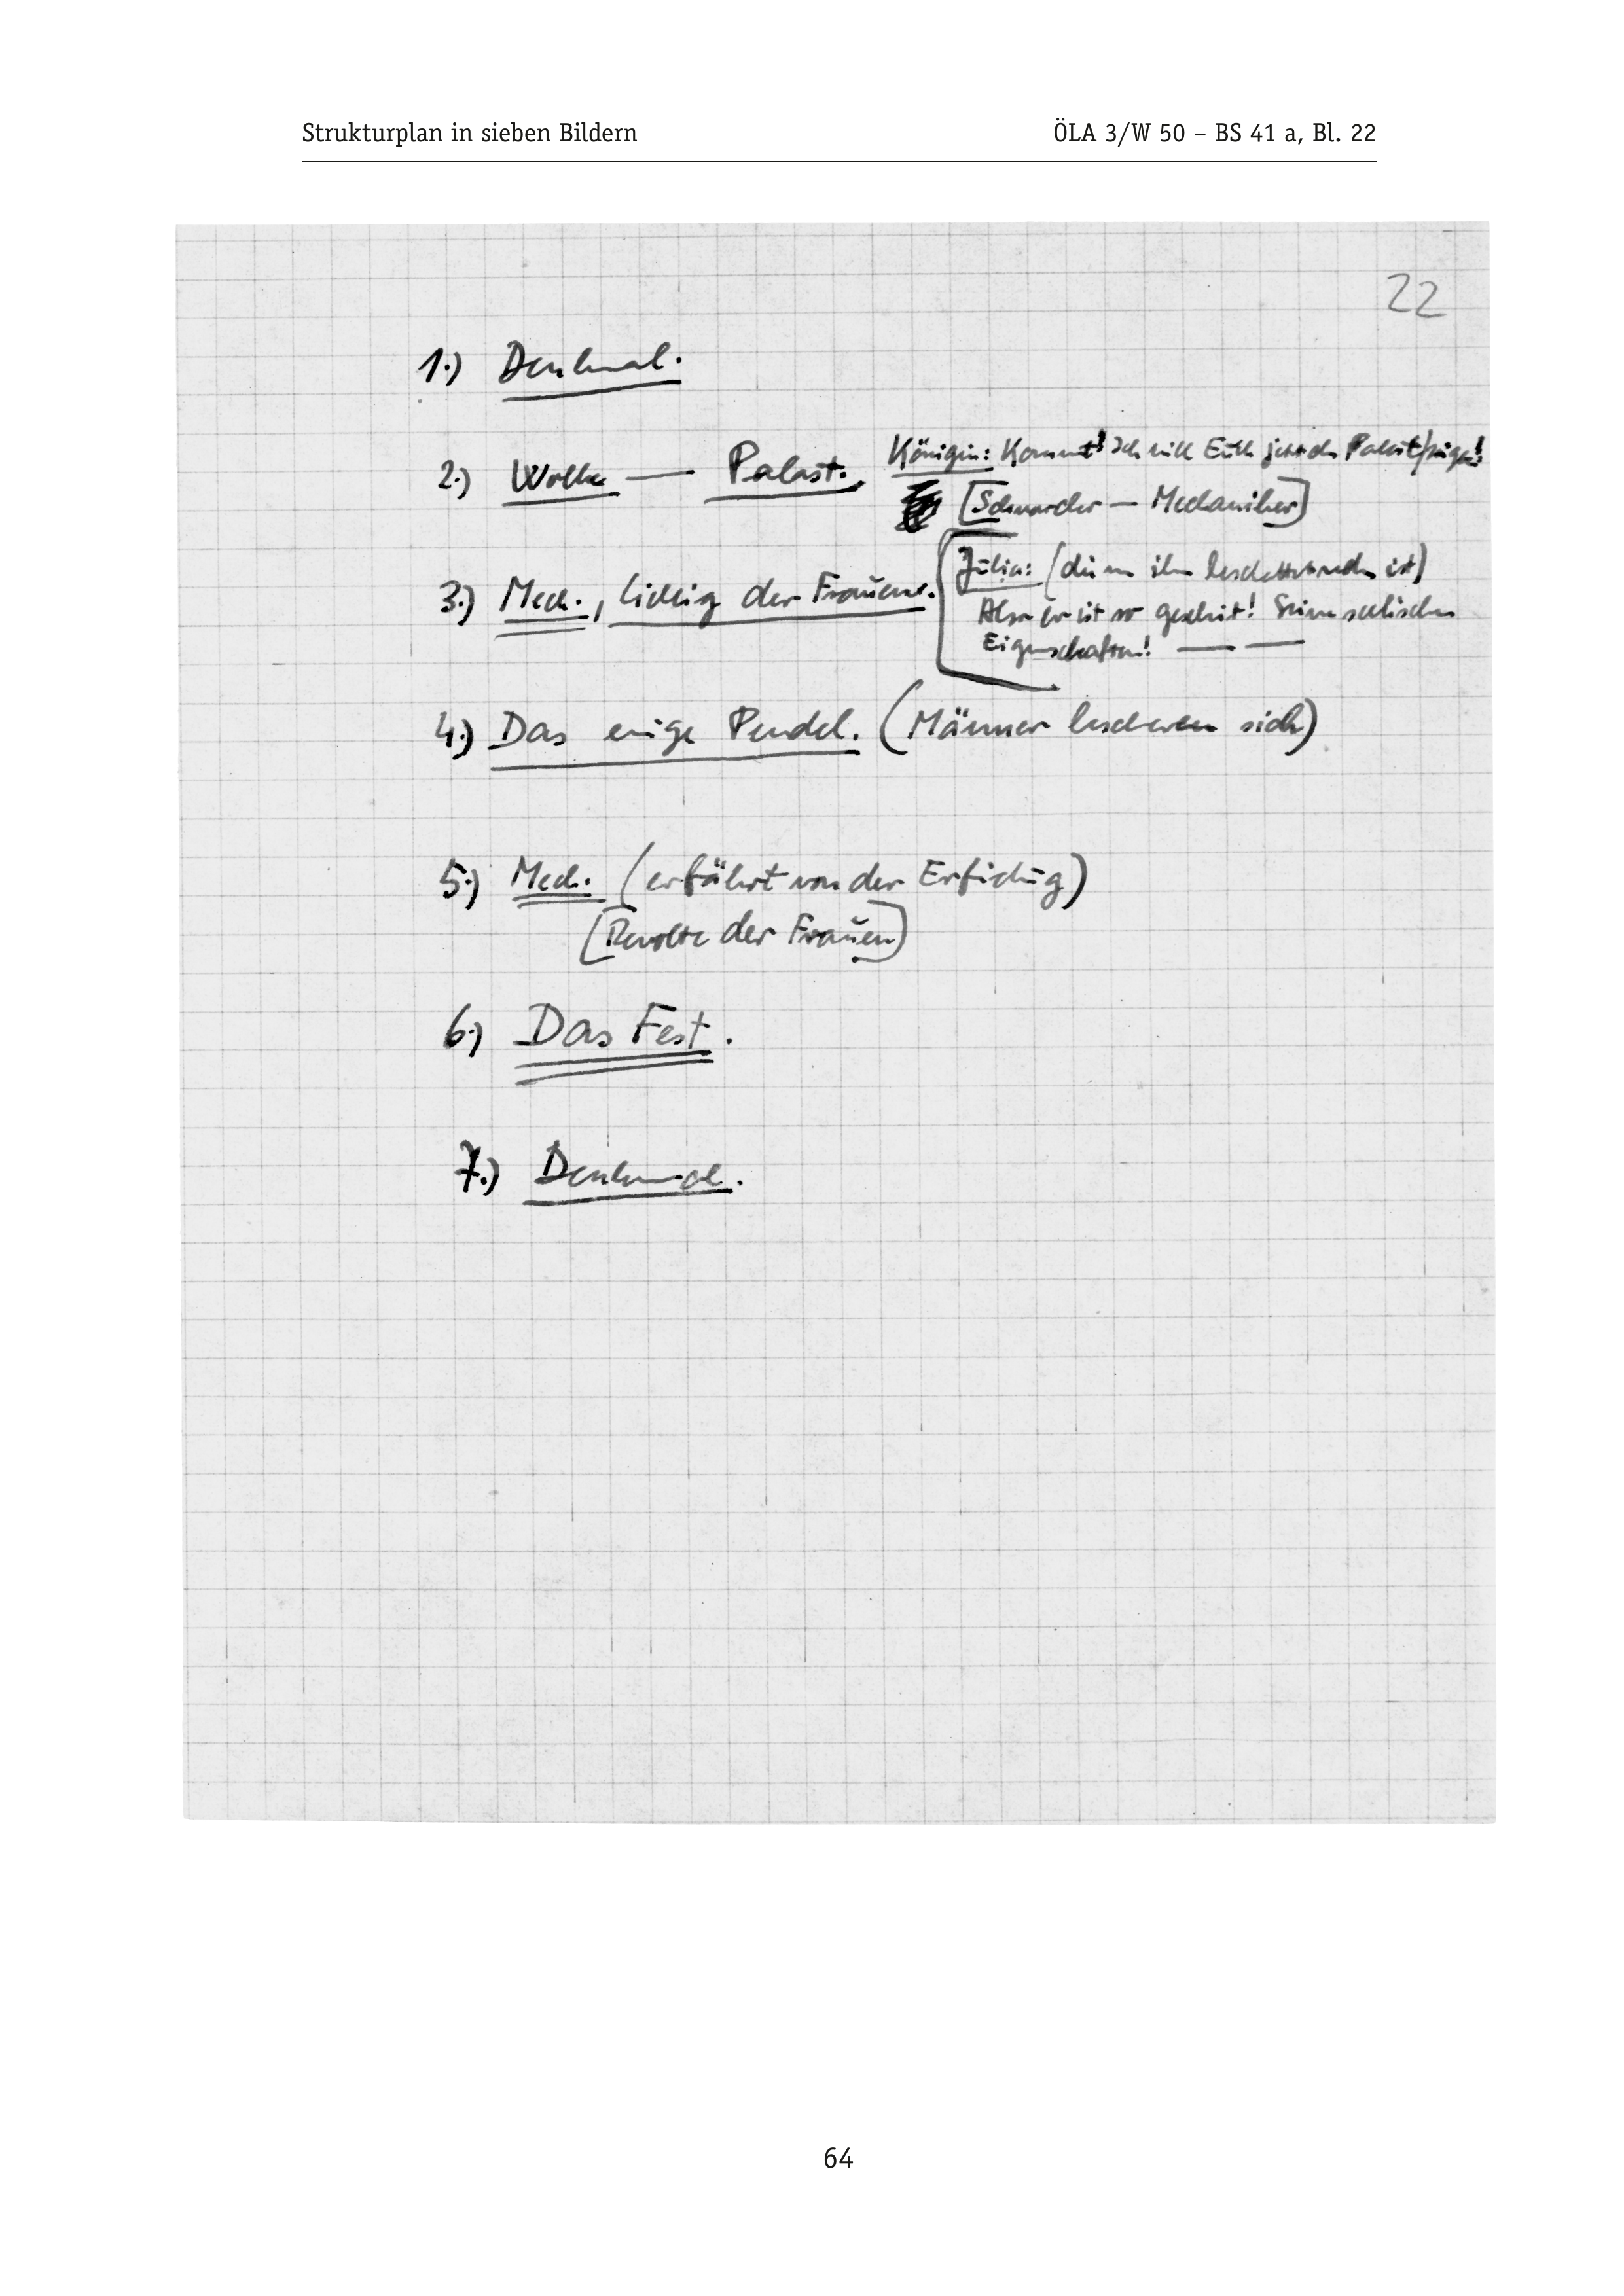 Strukturplan in sieben Bildern ÖLA 3/W 50 – BS 41 a, Bl. 22
22
1.) Denkmal.
2.) Wolke — Palast. Königin: Kommt! Ich will Euch jetzt den Palast zeigen!
[Schwarzer — Mechaniker]
3.) Mech., Liebling der Frauen.
Julia: (die in ihn ist)
Also er ist so gescheit! Seine seelischen
Eigenschaften! — —
4.) Das ewige Pendel. (Männer beschweren sich)
5.) Mech. (erfährt von der Erfidung)
[Revolte der Frauen]
6.) Das Fest.
7.) Denkmal.
64